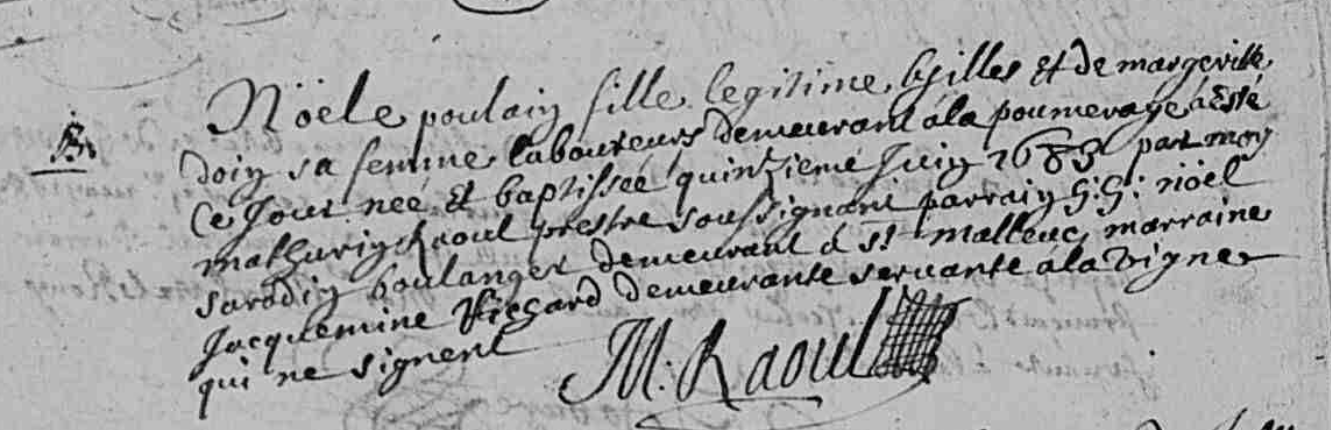 Nöele poulain fille legitime Gilles et de margeritte
doin sa femme laboureurs demeurant a la poumeraye a Esté
Ce Jour neé et baptisseé quinzieme Juin 1683 par moy
mathurin Raoul prestre soussignant parrain H: G: nöel
sarodin boulanger demeurant a St malleuc, marraine
Jacquemine Richard demeurante servante a la vigne
qui ne signent
M: Raoul